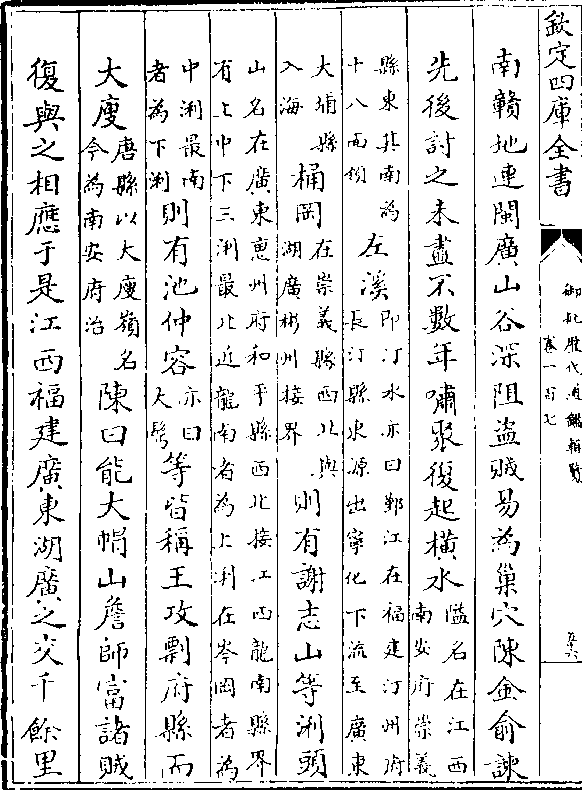 欽定四庫全書
御批歷代通鑑輯覽
卷一百七
南贛地連閩廣山谷深阻盜賊易為巢穴陳金俞諫
先後討之未盡不數年嘯聚復起橫水隘名在江西南安府崇義
縣東其南為十八面左溪即汀水亦曰鄞江在福建汀州府長汀縣東源出寧化下流至廣東
大埔縣入海桶岡在崇義縣西北與湖廣彬州接界則有謝志山等浰頭
山名在廣東惠州府和平縣西北接江西龍南縣界有上中下三浰最北近龍南者為上浰在岑岡者為
中浰最南者為下浰則有池仲容亦曰大鬢等皆稱王攻剽府縣而
大庾唐縣以大庾嶺名今為南安府治陳曰能大帽山詹師富諸賊
復與之相應于是江西福建廣東湖廣之交千餘里